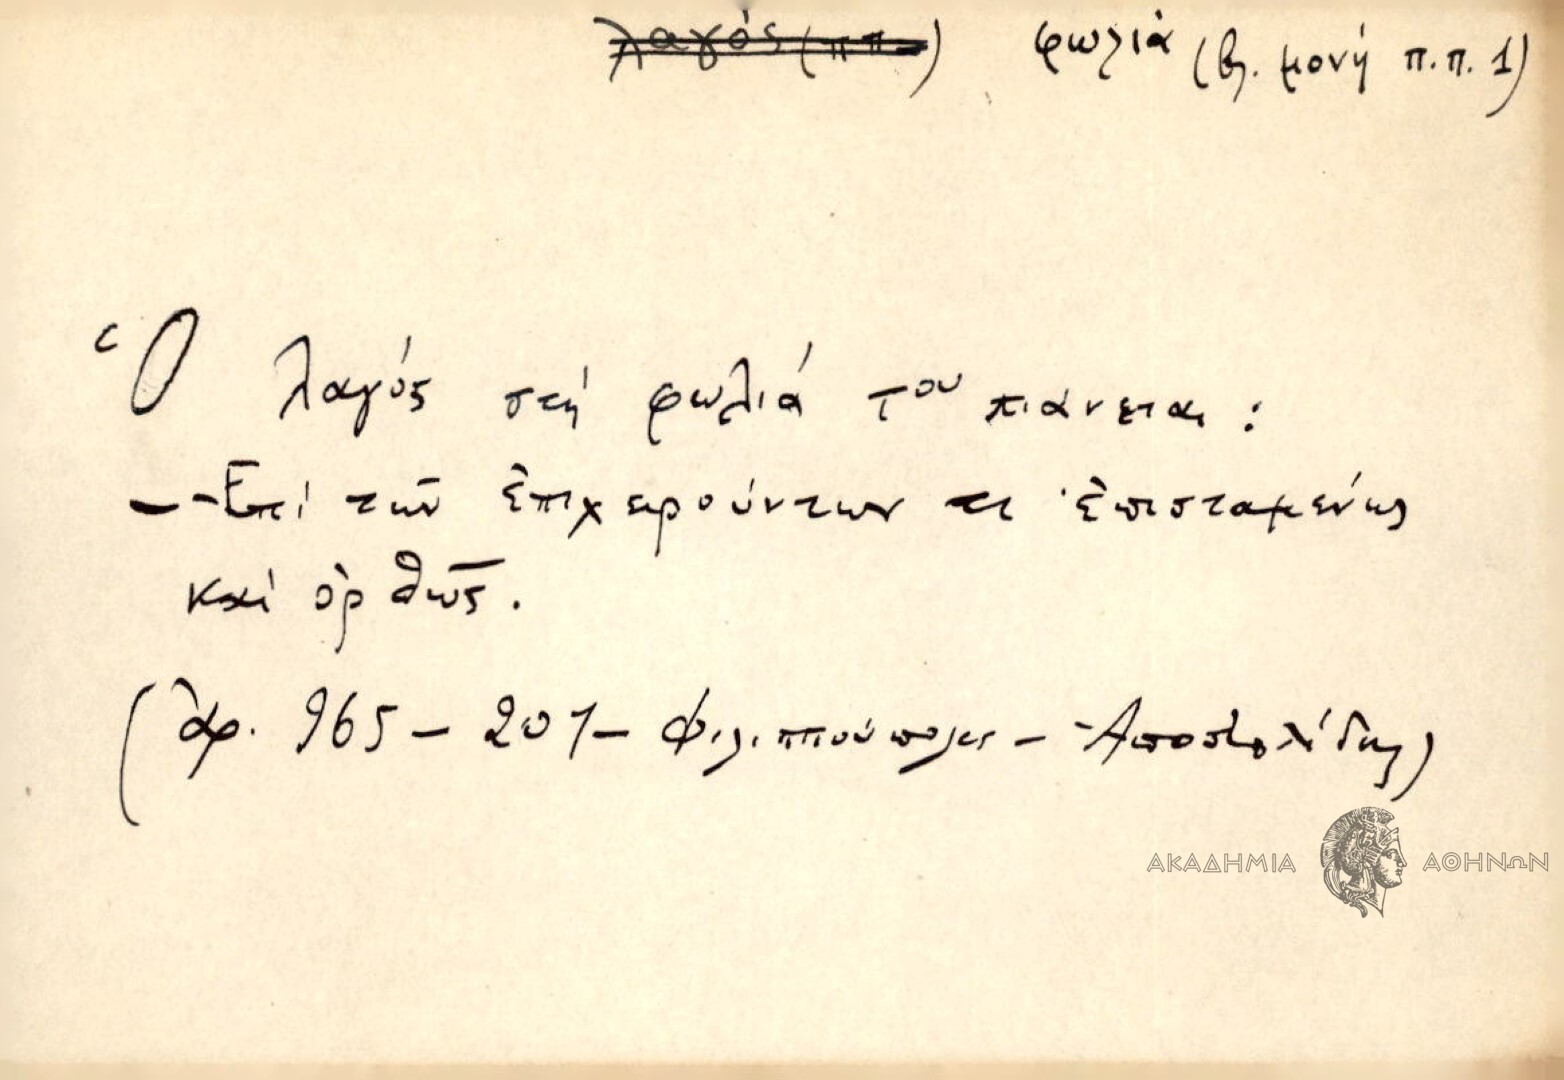 λαγός (π.π.) φωλιὰ (βλ. μονή π.π. 1)
Ὁ λαγός στή φωλιά του πιάνεται:
— Ἐπί τῶν ἐπιχειρούντων τι ἐπισταμένως
καὶ ὀρθῶς.
(ἀρ. 965 – 201 – Φιλιππούπολις – Ἀποστολίδης)
ΑΚΑΔΗΜΙΑ ΑΘΗΝΩΝ